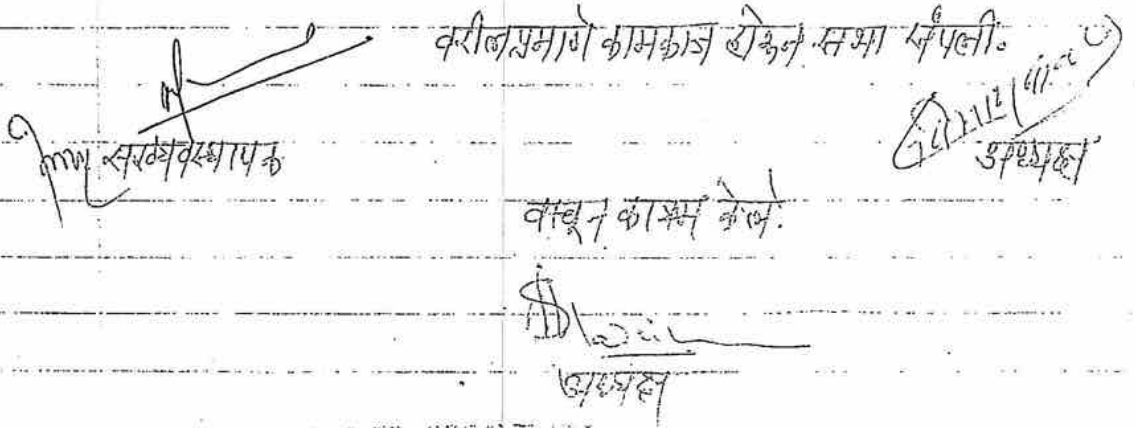 वरीलप्रमाणे कामकाज होऊन सभा संपली.
सरव्यवस्थापक
अध्यक्ष
वाचून कायम केले.
अध्यक्ष